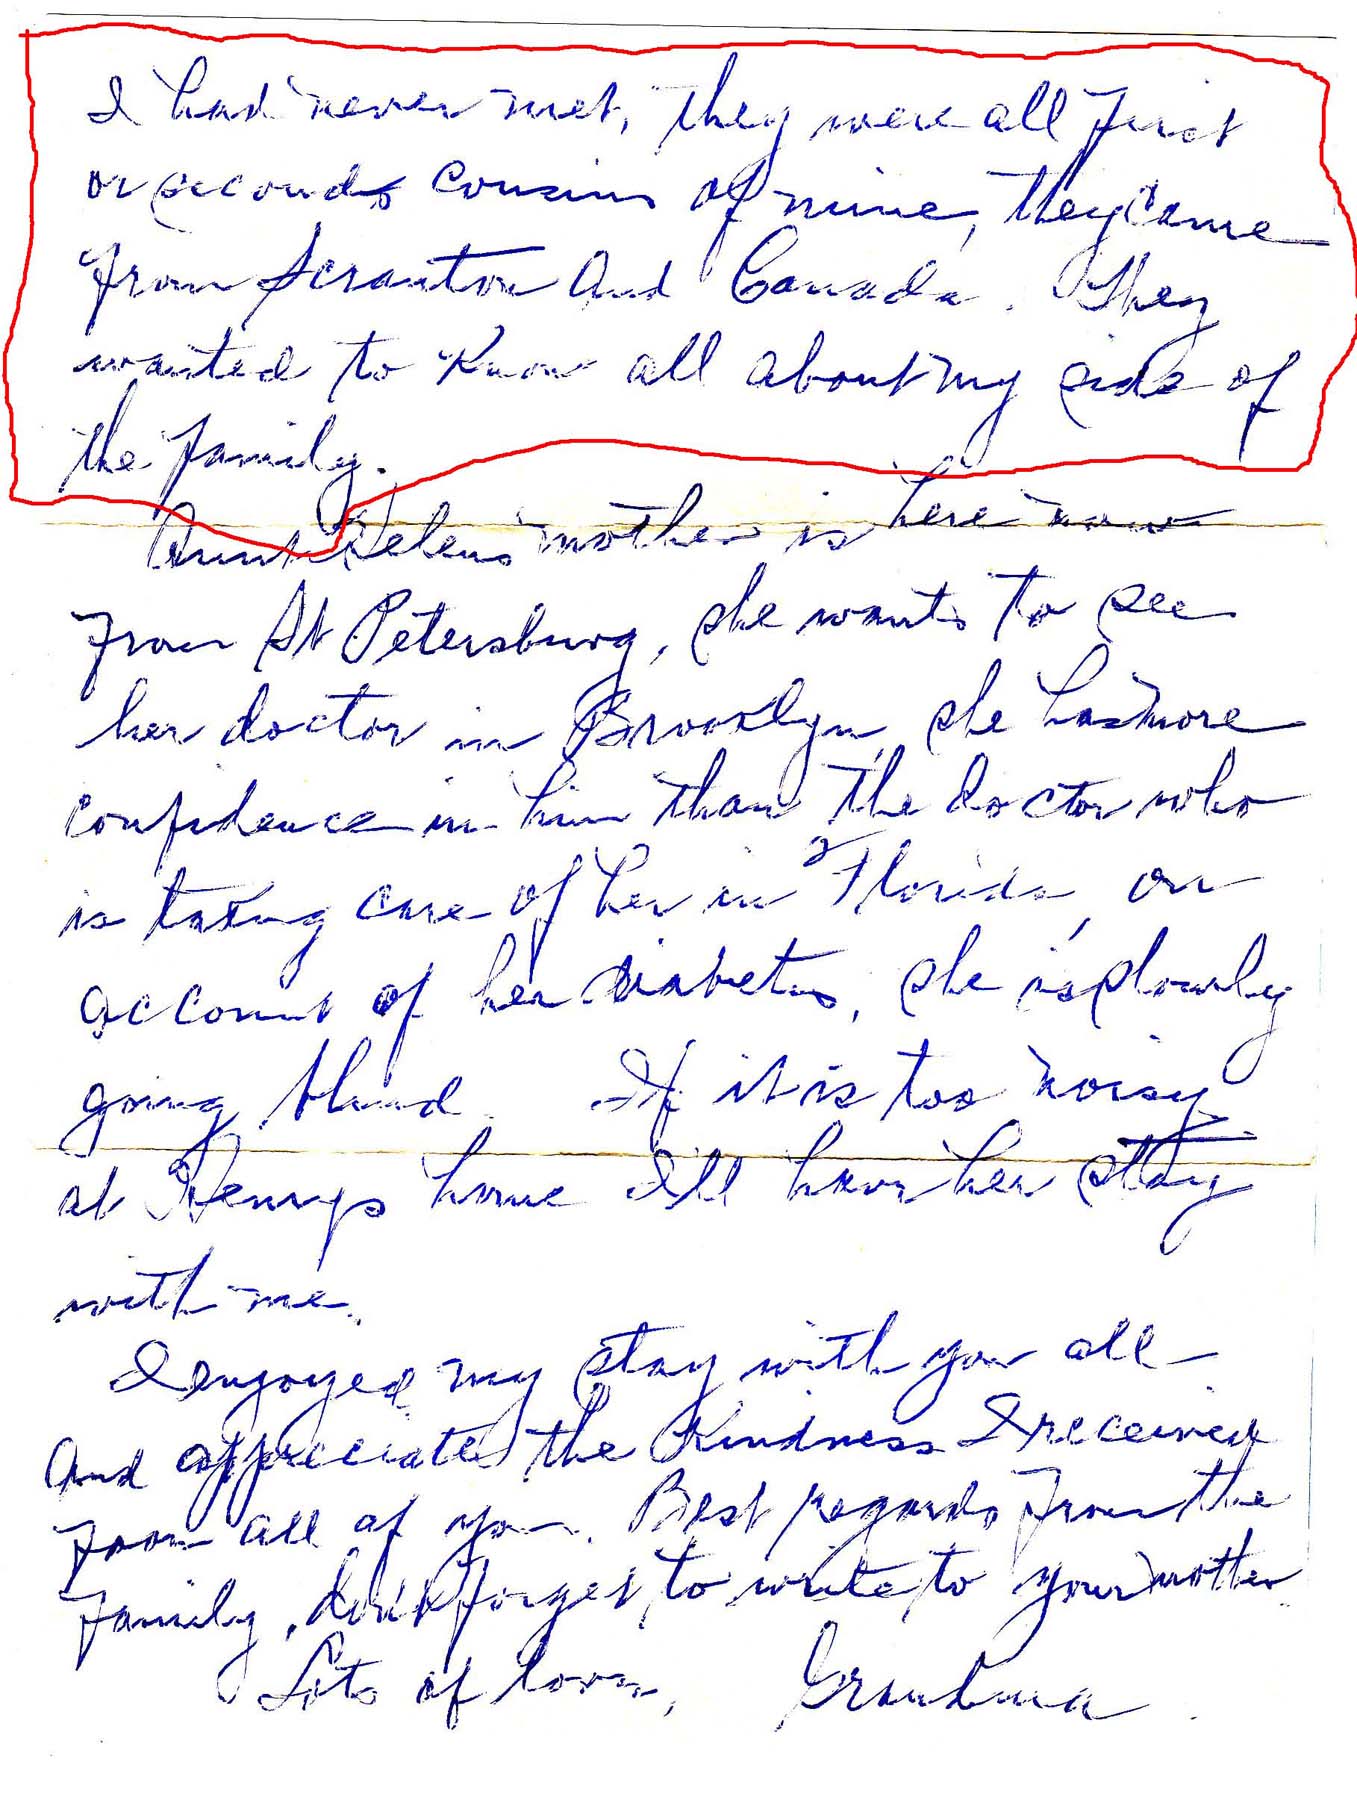 I had never met, they were all first
or seconds cousins of mine, they came
from Scranton and Canada. They
wanted to know all about my side of
the family.
Aunt Helens mother is here now
from St Petersburg, she wants to see
her doctor in Brooklyn, she has more
confidence in him than the doctor who
is taking care of her in Florida, on
account of her diabetes, she is slowly
going blind. If it is too noisy
at Henrys home I'll have her stay
with me.
I enjoyed my stay with you all
and appreciated the kindness I received
from all of you. Best regards from the
family, don't forget to write to your mother
Lots of love, Grandma